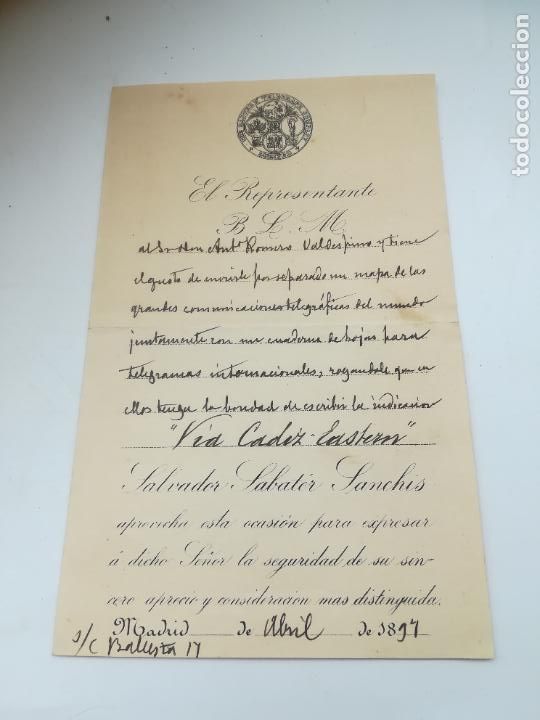 El Representante
B. L. M.
al Sr Don Antº Romero Valdespino y tiene
el gusto de enviarle por separado un mapa de las
grandes comunicaciones telegráficas del mundo
juntamente con un cuaderno de hojas para
telegramas internacionales, rogandole que en
ellos tenga la bondad de escribir la indicación
"Via Cadiz-Eastern"
Salvador Sabatér Sanchis
aprovecha esta ocasión para expresar
á dicho Señor la seguridad de su sin-
cero aprecio y consideracion mas distinguida.
Madrid de Abril de 1897
s/c Ballesta 17
todocoleccion